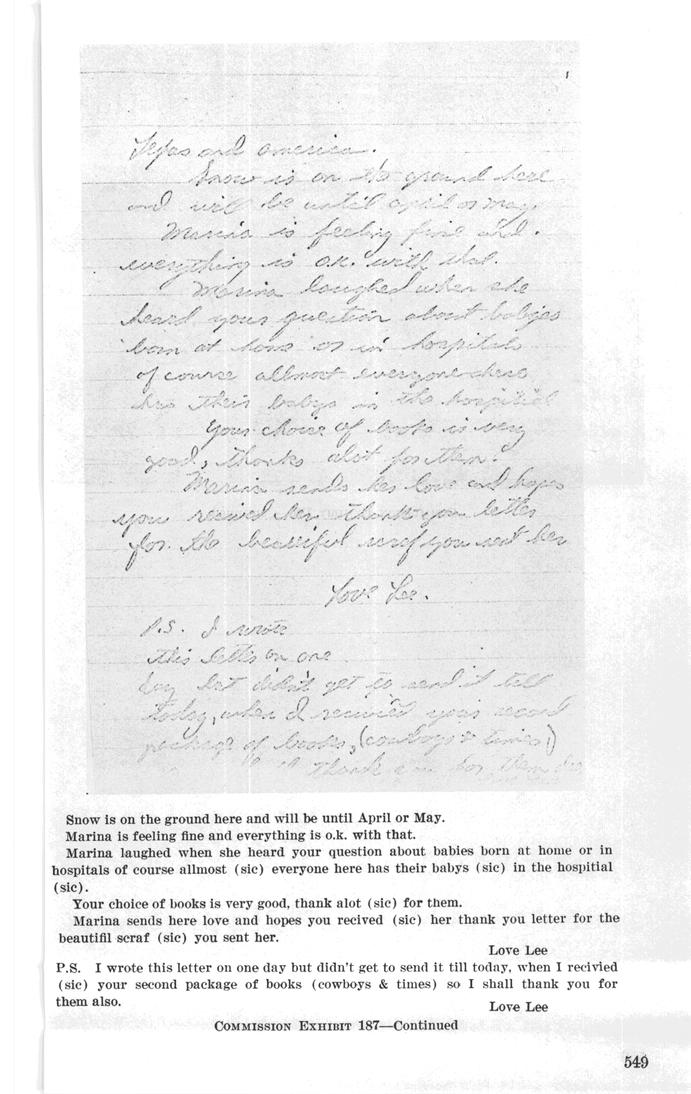 Texas and america.
Snow is on the ground here
and will be until april or may.
Marina is feeling fine and
everything is o.k. with that.
Marina laughed when she
heard your question about babys
born at home or in hospitals
of course allmost everyone here
has their babys in the hospitial
Your choice of books is very
good, thanks alot for them.
Marina sends her love and hopes
you recived her thank you letter
for the beautiful scraf you sent her
Love Lee.
P.S. I wrote
this letter on one
day but didn't get to send it till
today, when I recivied your second
package of books, (cowboys & times)
thank you for them
Snow is on the ground here and will be until April or May.
Marina is feeling fine and everything is o.k. with that.
Marina laughed when she heard your question about babies born at home or in
hospitals of course allmost (sic) everyone here has their babys (sic) in the hospitial
(sic).
Your choice of books is very good, thank alot (sic) for them.
Marina sends here love and hopes you recived (sic) her thank you letter for the
beautifil scraf (sic) you sent her.
Love Lee
P.S. I wrote this letter on one day but didn't get to send it till today, when I recivied
(sic) your second package of books (cowboys & times) so I shall thank you for
them also.
Love Lee
COMMISSION EXHIBIT 187—Continued
549